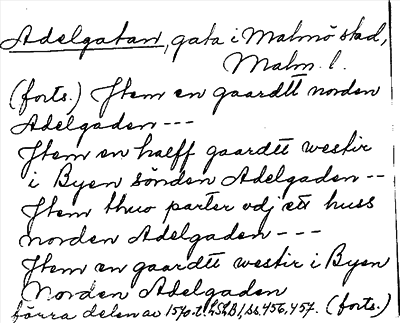 Adelgatan, gata i Malmö stad,
Malm. l.
(forts.) Jtem en gaardtt norden
Adelgaden ---
Jtem en halff gaardtt westir
i Byen sönden Adelgaden --
Jtem thuo parter vdj ett huss
norden Adelgaden ---
Jtem en gaardtt westir i Byen
Norden Adelgaden
förra delen av 1570-t. LSLB1, ss. 456, 457. (forts.)